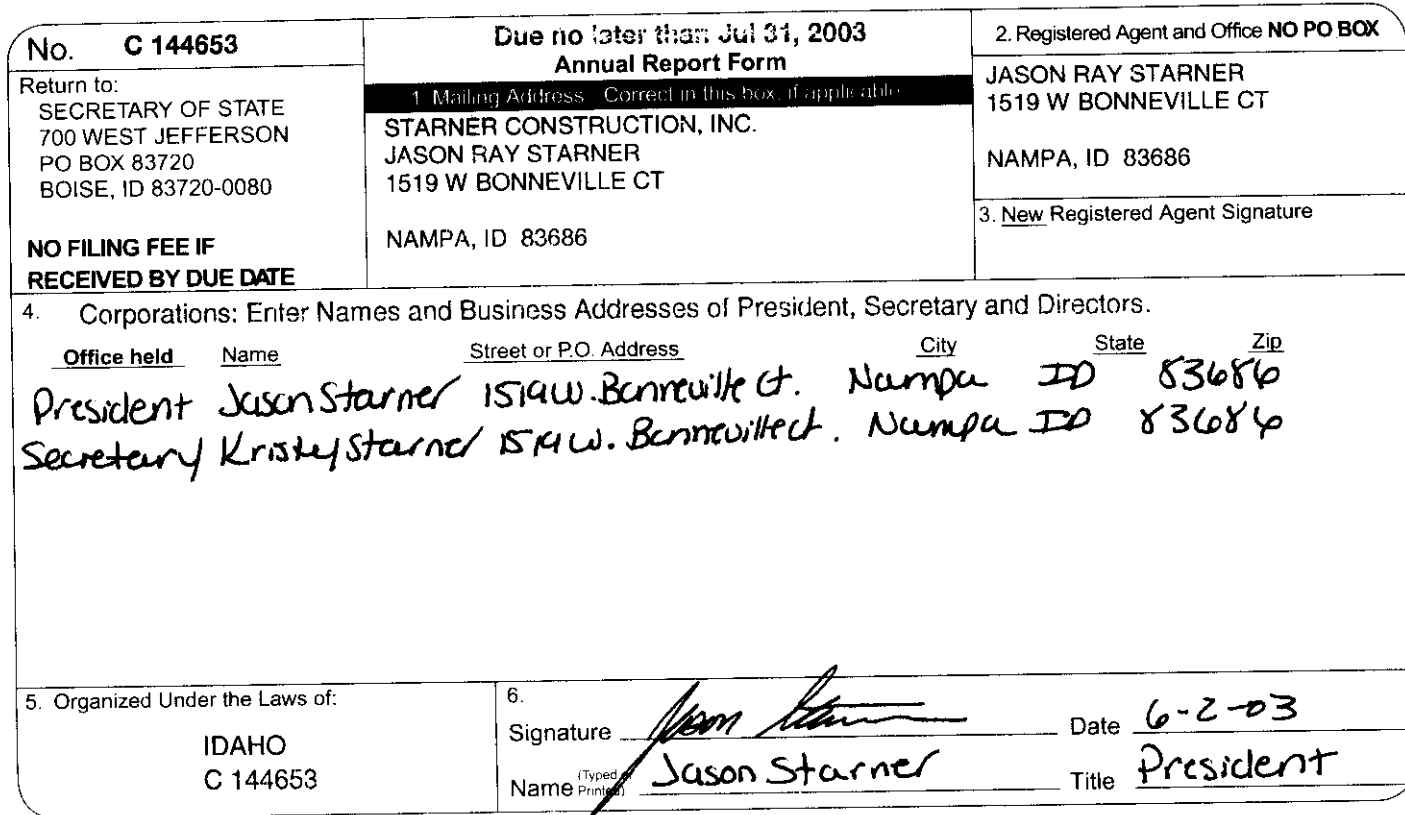 No. C 144653
Return to:
SECRETARY OF STATE
700 WEST JEFFERSON
PO BOX 83720
BOISE, ID 83720-0080
NO FILING FEE IF
RECEIVED BY DUE DATE
Due no later than Jul 31, 2003
Annual Report Form
1. Mailing Address Correct in this box, if applicable
STARNER CONSTRUCTION, INC.
JASON RAY STARNER
1519 W BONNEVILLE CT
NAMPA, ID 83686
2. Registered Agent and Office NO PO BOX
JASON RAY STARNER
1519 W BONNEVILLE CT
NAMPA, ID 83686
3. New Registered Agent Signature
4. Corporations: Enter Names and Business Addresses of President, Secretary and Directors.
Office held Name Street or P.O. Address City State Zip
President Jason Starner 1519 W. Bonneville Ct. Nampa ID 83686
Secretary Kristy Starner 1519 W. Bonneville Ct. Nampa ID 83686
5. Organized Under the Laws of:
IDAHO
C 144653
6.
Signature Jason Starner Date 6-2-03
Name (Typed or Printed) Jason Starner Title President